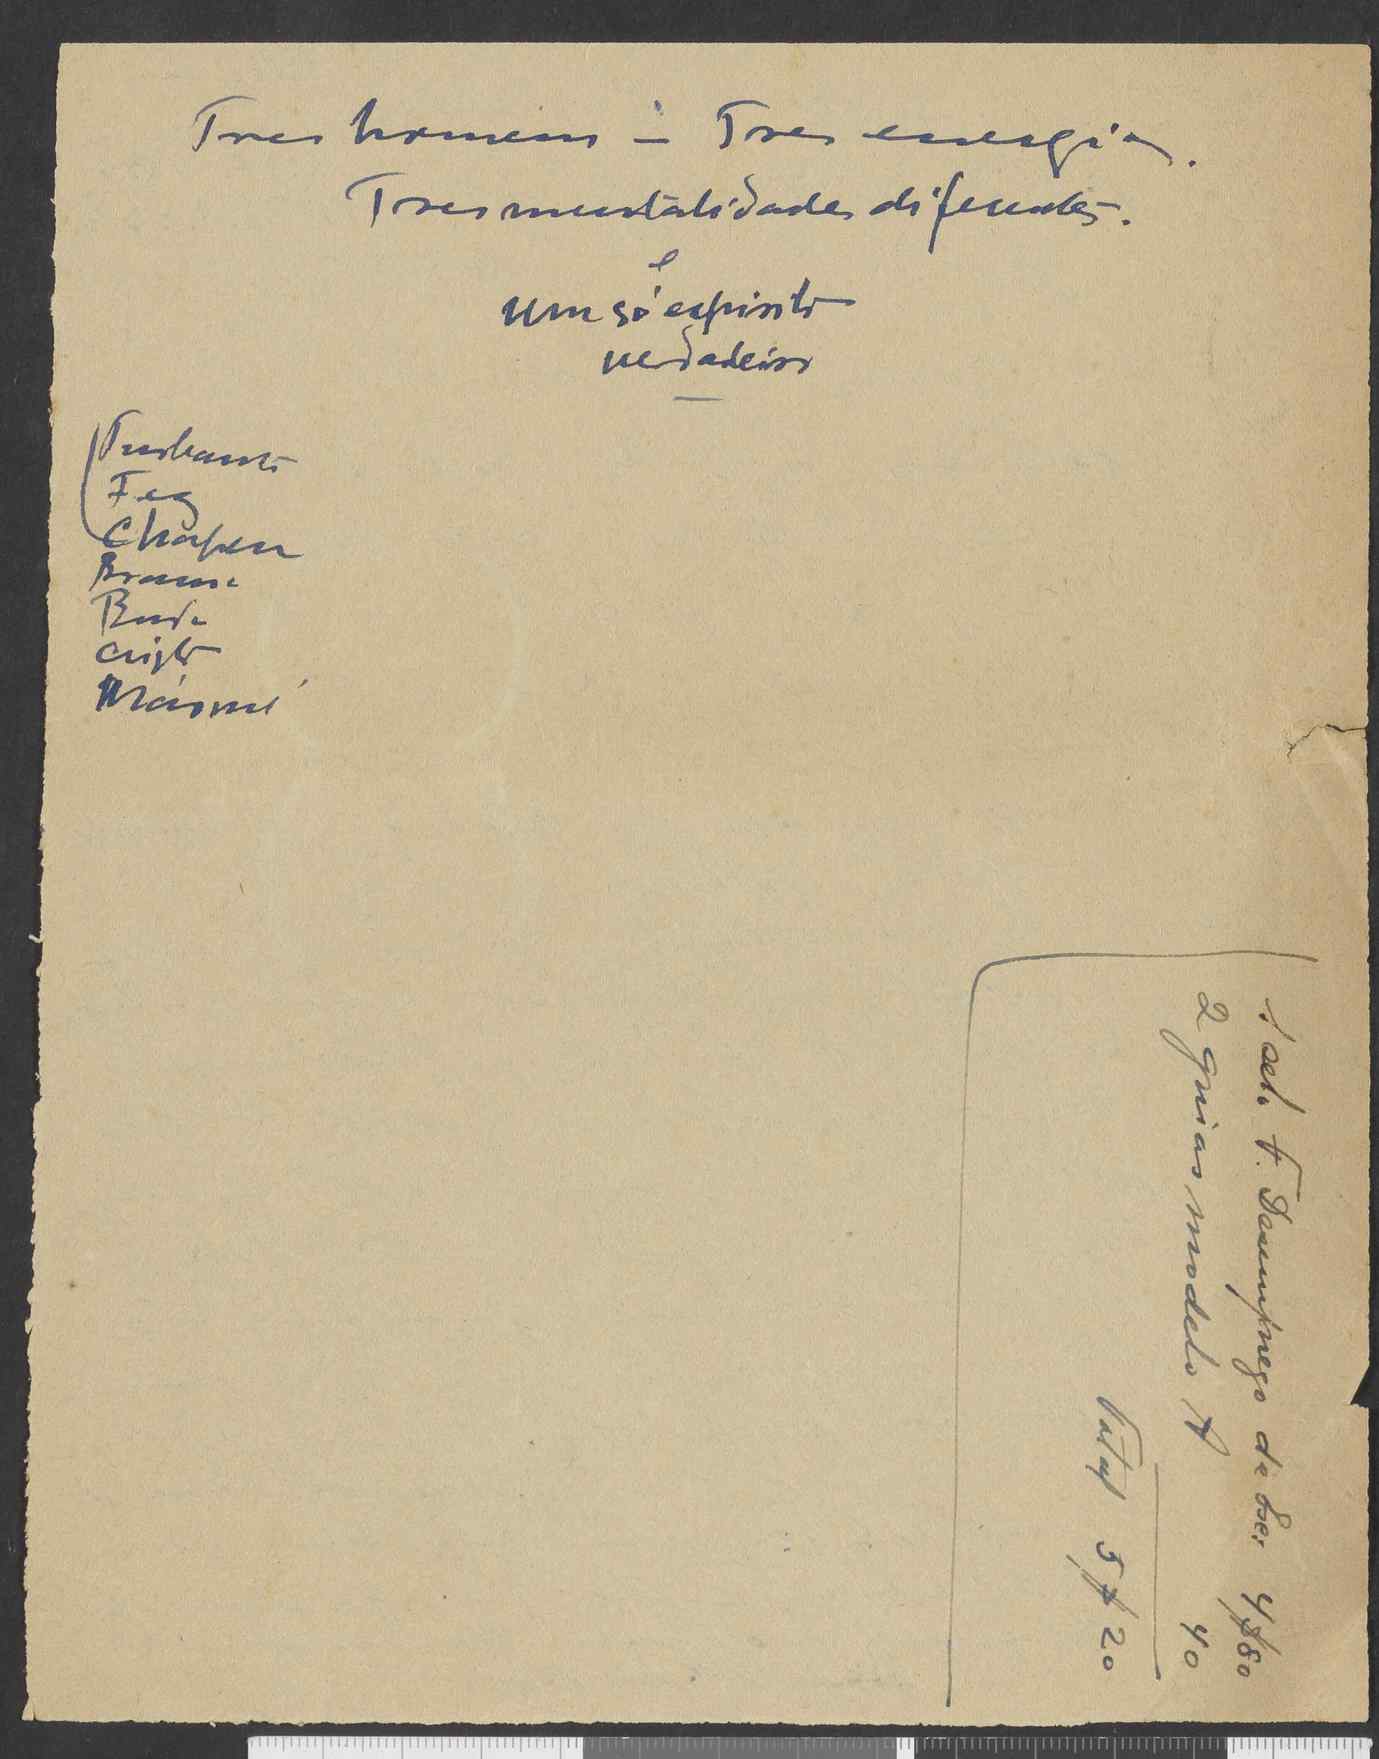 Tres homens — Tres energias.
Tres mentalidades diferentes.
e
um só espirito
verdadeiro
Turbante
Fez
Chapeu
Brama
Buda
Cristo
Maomé
1 selo F. Desemprego de Esc. 4$80
2 guias modelo A 40
Total 5$20